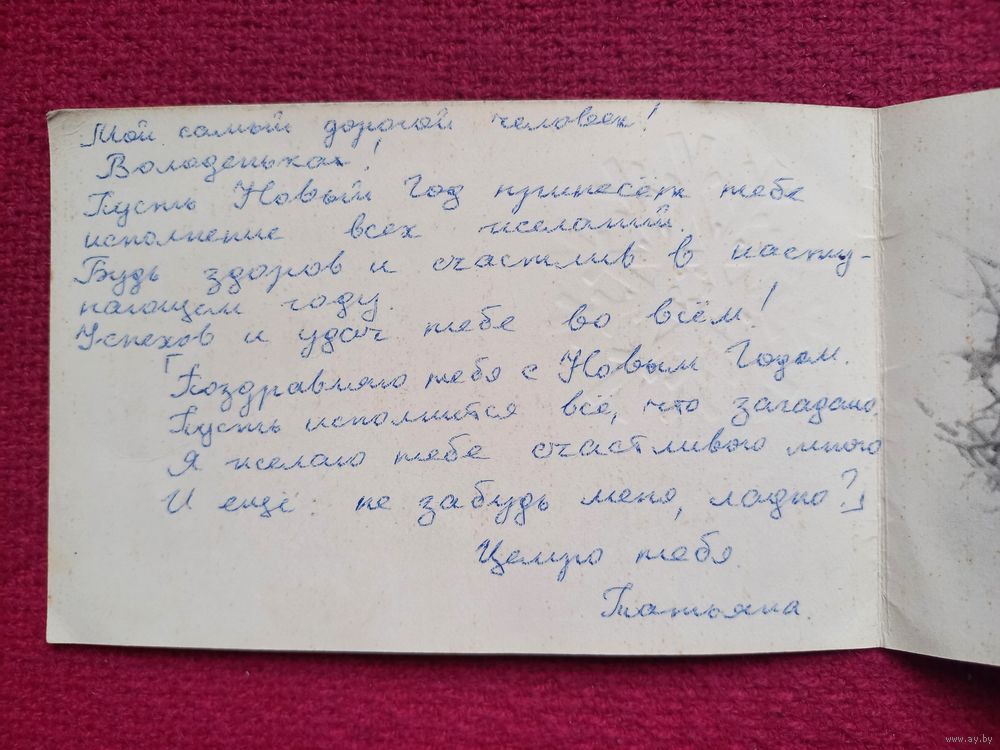 Мой самый дорогой человек!
Володенька!
Пусть Новый Год принесёт тебе
исполнение всех желаний.
Будь здоров и счастлив в насту-
пающем году.
Успехов и удач тебе во всём!
"Поздравляю тебя с Новым Годом.
Пусть исполнится всё, что загадано,
Я желаю тебе счастливого много
И ещё: не забудь меня, ладно?"
Целую тебя
Татьяна.
www.ay.by